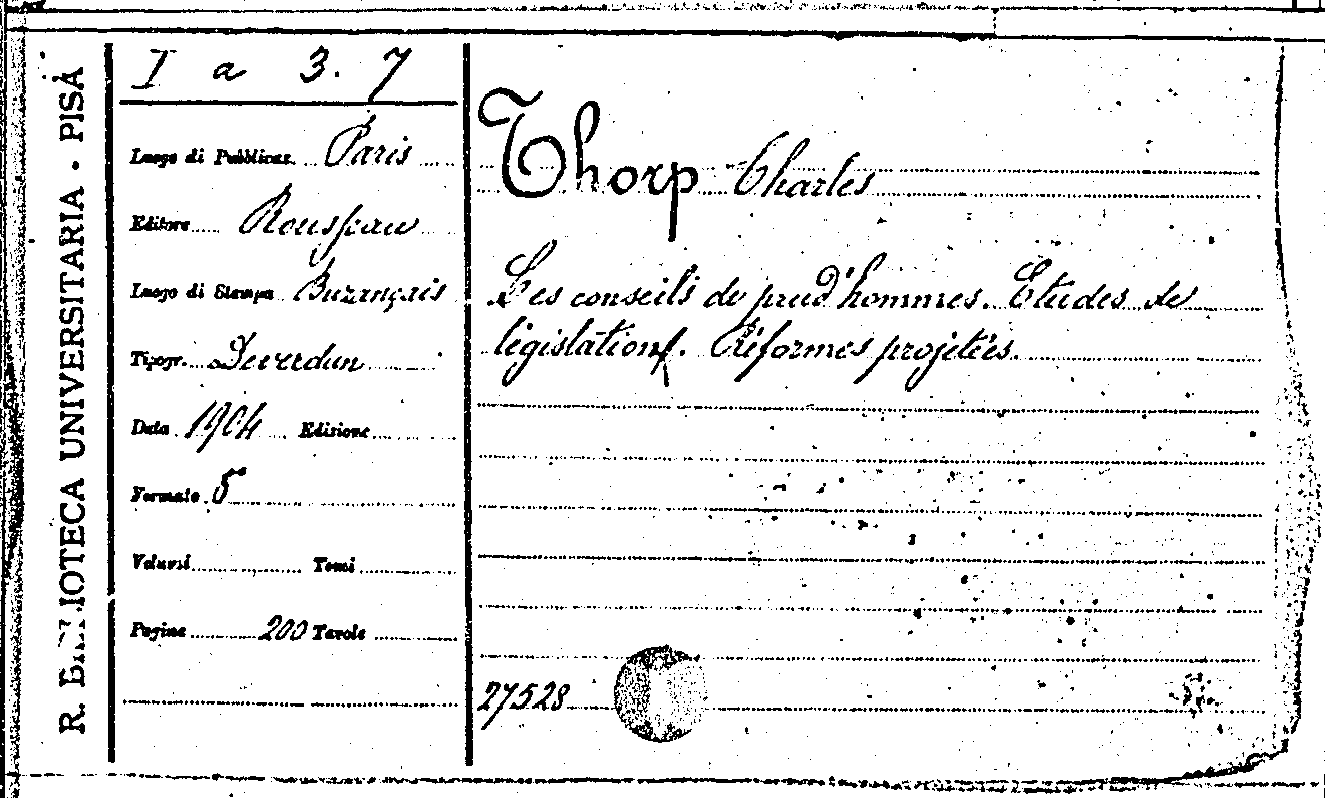 R. BIBLIOTECA UNIVERSITARIA · PISA
I a 3. 7
Luogo di Pubblicaz. Paris
Editore Rousseau
Luogo di Stampa Buzançais
Tipogr. Deverdun
Data 1904 Edizione
Formato 5
Volumi Tomi
Pagine 200 Tavole
Thorp Charles
Les conseils de prud'hommes. Etudes de
législation. Réformes projetées.
27528